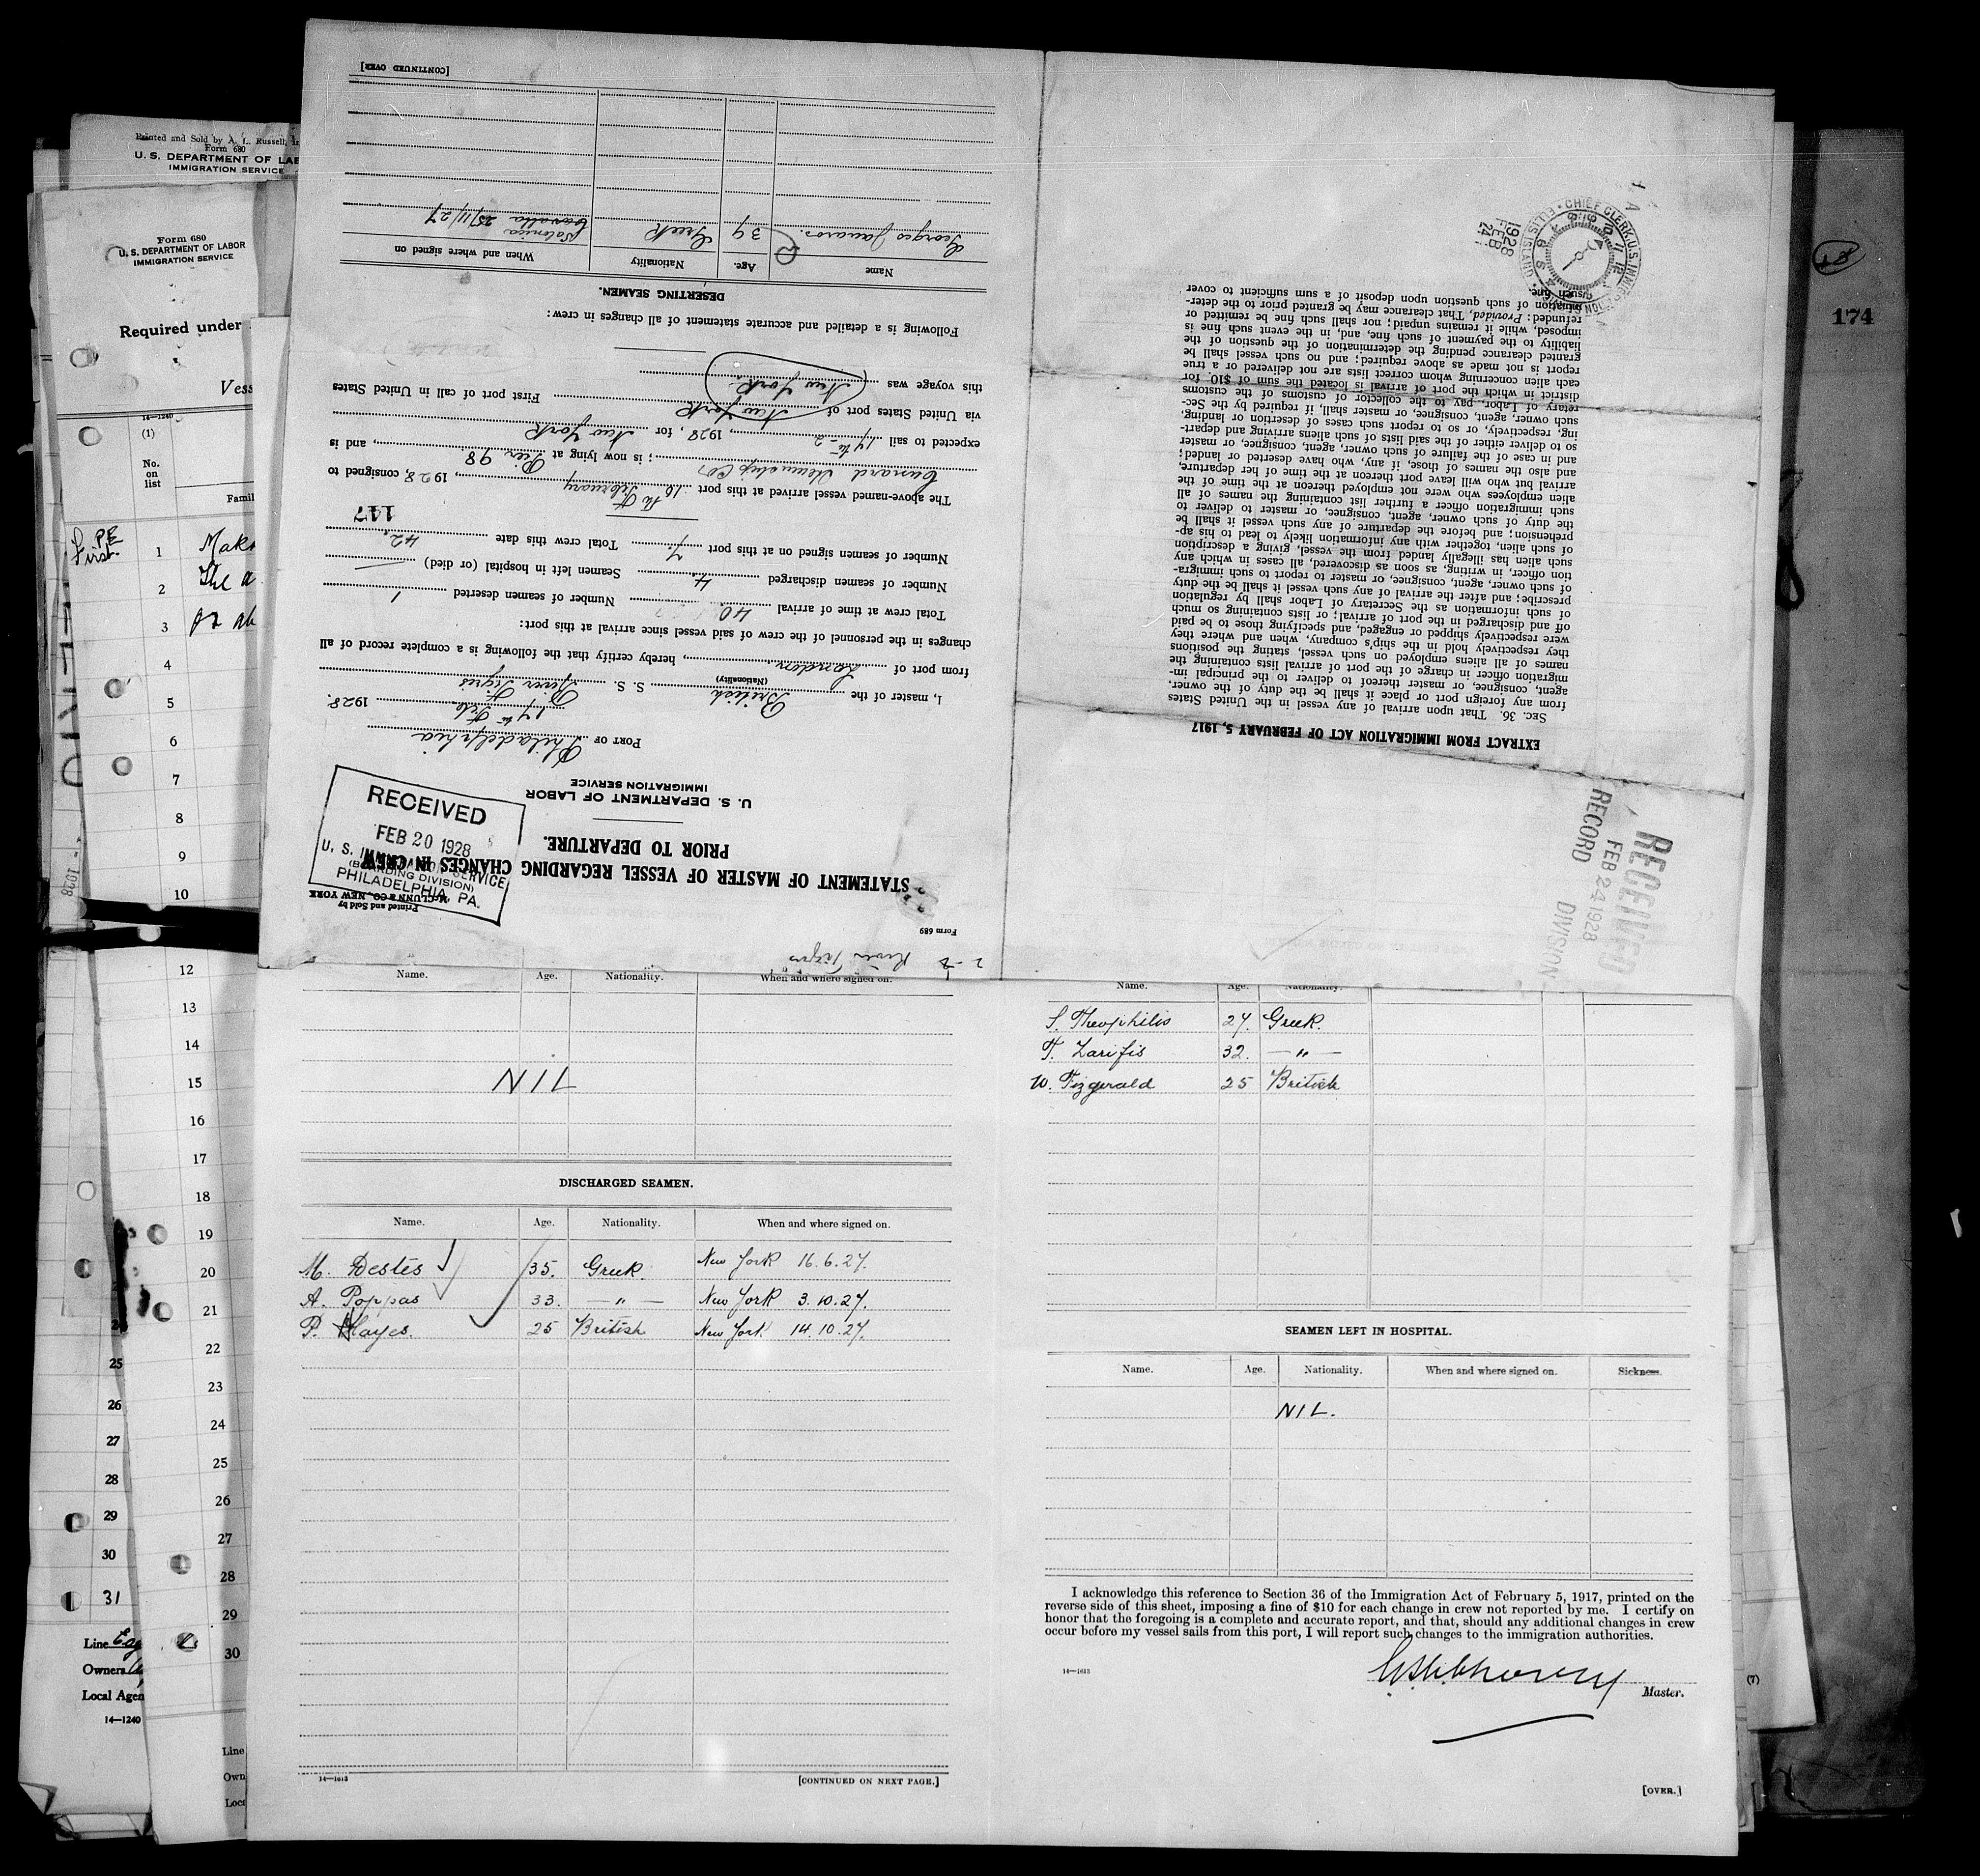 Printed and Sold by A. L. Russell, In
Form 680
U. S. DEPARTMENT OF LAB
IMMIGRATION SERVICE
Form 680
U. S. DEPARTMENT OF LABOR
IMMIGRATION SERVICE
Required under
Vess
14—1240
(1)
No.
on
list
Famil
PE
First.
1
2
The a
3
4
5
6
7
8
9
10
12
13
14
15
16
17
18
19
20
21
22
23
24
25
26
27
28
29
30
25
26
27
28
29
30
31
Line
Owners
Local Agen
14—1240
Line
Own
Loca
1928
174
18
(7)
2-8 River Tigris
Form 689
Printed and Sold by
McCLUNN & CO., NEW YORK
STATEMENT OF MASTER OF VESSEL REGARDING CHANGES IN CREW
PRIOR TO DEPARTURE.
U. S. DEPARTMENT OF LABOR
IMMIGRATION SERVICE
RECEIVED
FEB 20 1928
U. S. IMMIGRATION SERVICE
(BOARDING DIVISION)
PHILADELPHIA, PA.
PORT OF Philadelphia
17th Feb 1928.
I, master of the British S. S. River Tigris
(Nationality)
from port of London, hereby certify that the following is a complete record of all
changes in the personnel of the crew of said vessel since arrival at this port:
Total crew at time of arrival 40 Number of seamen deserted 1
Number of seamen discharged 4 Seamen left in hospital (or died) —
Number of seamen signed on at this port 7 Total crew this date 42
117
The above-named vessel arrived at this port 10th of February, 1928 consigned to
Cunard Steamship Co; is now lying at P. Pier 98, and is
expected to sail 17th-2, 1928, for New York
via United States port of New York First port of call in United States
this voyage was New York
Following is a detailed and accurate statement of all changes in crew:
DESERTING SEAMEN.
Name Age. Nationality When and where signed on
Georges Janaros. 39 Greek Salonica
Cavalla 25/11/27
[CONTINUED OVER]
EXTRACT FROM IMMIGRATION ACT OF FEBRUARY 5, 1917
SEC. 36. That upon arrival of any vessel in the United States
from any foreign port or place it shall be the duty of the owner,
agent, consignee, or master thereof to deliver to the principal im-
migration officer in charge of the port of arrival lists containing the
names of all aliens employed on such vessel, stating the positions
they respectively hold in the ship's company, when and where they
were respectively shipped or engaged, and specifying those to be paid
off and discharged in the port of arrival; or lists containing so much
of such information as the Secretary of Labor shall by regulation
prescribe; and after the arrival of any such vessel it shall be the duty
of such owner, agent, consignee, or master to report to such immigra-
tion officer, in writing, as soon as discovered, all cases in which any
such alien has illegally landed from the vessel, giving a description
of such alien, together with any information likely to lead to his ap-
prehension; and before the departure of any such vessel it shall be
the duty of such owner, agent, consignee, or master to deliver to
such immigration officer a further list containing the names of all
alien employees who were not employed thereon at the time of the
arrival but who will leave port thereon at the time of her departure,
and also the names of those, if any, who have deserted or landed;
and in case of the failure of such owner, agent, consignee, or master
so to deliver either of the said lists of such aliens arriving and depart-
ing, respectively, or so to report such cases of desertion or landing,
such owner, agent, consignee, or master shall, if required by the Sec-
retary of Labor, pay to the collector of customs of the customs
district in which the port of arrival is located the sum of $10 for
each alien concerning whom correct lists are not delivered or a true
report is not made as above required; and no such vessel shall be
granted clearance pending the determination of the question of the
liability to the payment of such fine, and, in the event such fine is
imposed, while it remains unpaid; nor shall such fine be remitted or
refunded: Provided, That clearance may be granted prior to the deter-
mination of such question upon deposit of a sum sufficient to cover
such fine.
CHIEF CLERK, U.S. IMMIGRATION SERVICE · ELLIS ISLAND
1928
FEB
24
RECEIVED
FEB 24 1928
RECORD DIVISION
Name. Age. Nationality. When and where signed on.
NIL
DISCHARGED SEAMEN.
Name. Age. Nationality. When and where signed on.
M. Destes 35. Greek. New York 16.6.27.
A. Poppas 33. —"— New York 3.10.27.
P. Hayes. 25 British New York 14.10.27.
14—1613
[CONTINUED ON NEXT PAGE.]
Name. Age. Nationality.
S. Theophilis 27. Greek.
T. Zarifis 32. —"—
W. Fizgerald 25 British
SEAMEN LEFT IN HOSPITAL.
Name. Age. Nationality. When and where signed on. Sickness.
NIL.
I acknowledge this reference to Section 36 of the Immigration Act of February 5, 1917, printed on the
reverse side of this sheet, imposing a fine of $10 for each change in crew not reported by me. I certify on
honor that the foregoing is a complete and accurate report, and that, should any additional changes in crew
occur before my vessel sails from this port, I will report such changes to the immigration authorities.
14—1613
Master.
[OVER.]